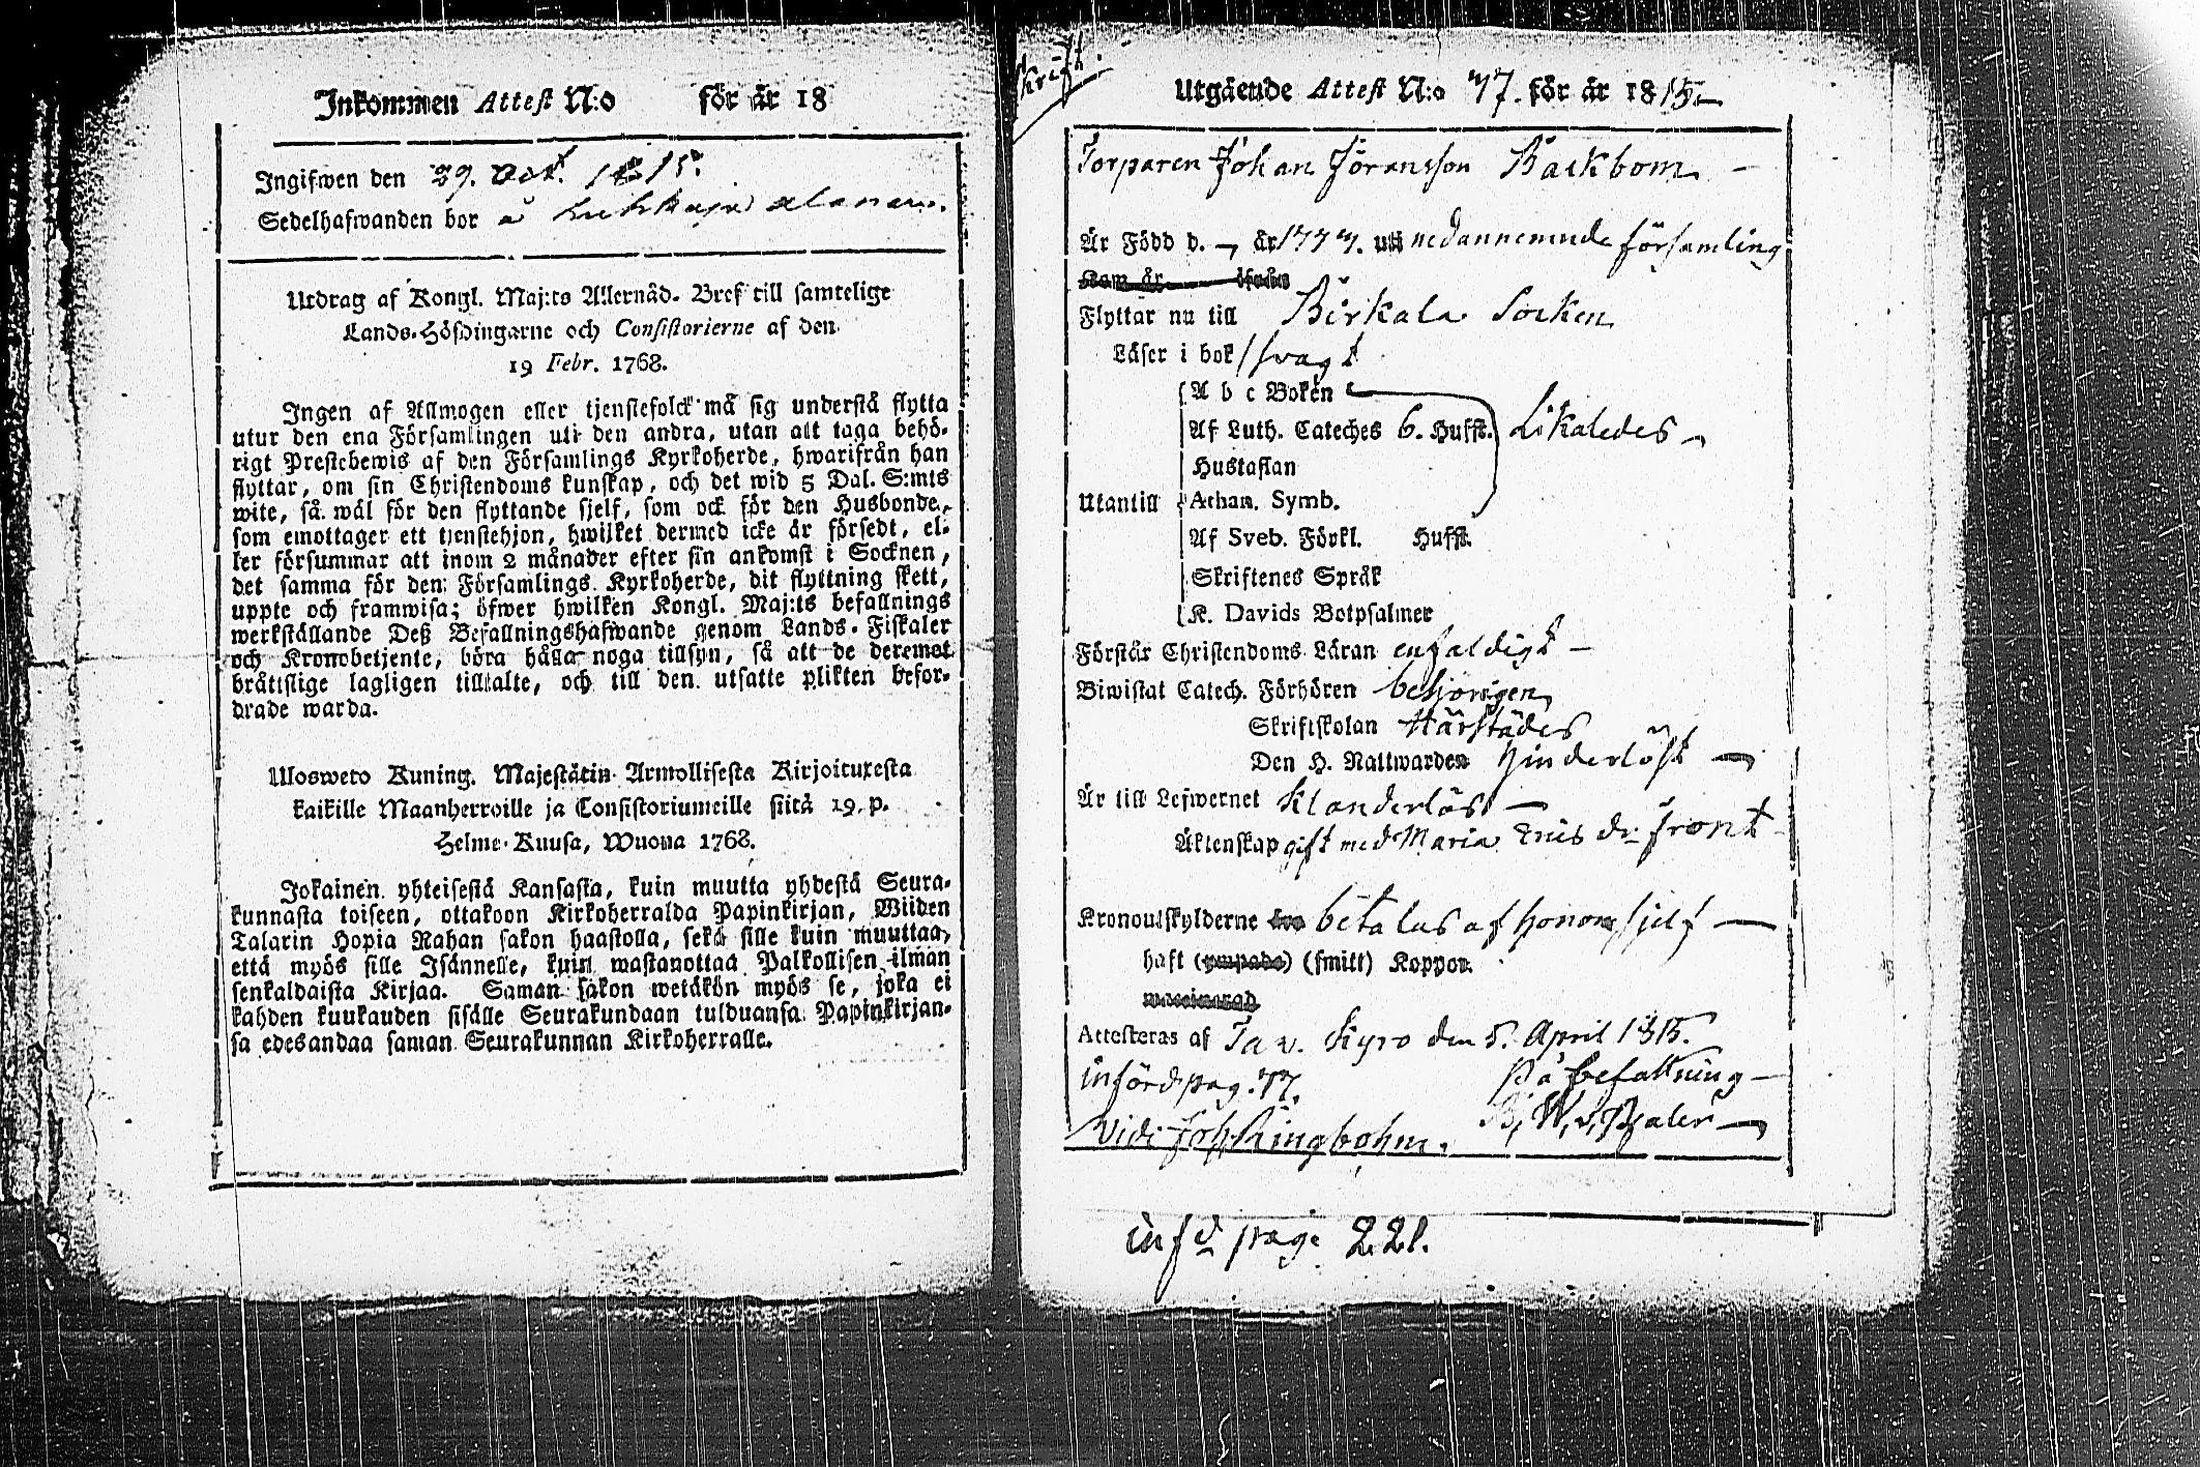 Inkommen Attest N:o för år 18
Ingifwen den 29. Oct. 1815.
Sedelhafwanden bor å
Utdrag af Kongl. Maj:ts Allernåd. Bref till samtelige
Lands-Höfdingarne och Consistorierne af den
19 Febr. 1768.
Ingen af Allmogen eller tjenstefolck må sig understå flytta
utur den ena Församlingen uti den andra, utan att taga behö-
rigt Prestebewis af den Församlings Kyrkoherde, hwarifrån han
flyttar, om sin Christendoms kunskap, och det wid 5 Dal. S:mts
wite, så wäl för den flyttande sjelf, som ock för den Husbonde,
som emottager ett tjenstehjon, hwilket dermed icke är försedt, el-
ler försummar att inom 2 månader efter sin ankomst i Socknen,
det samma för den Församlings Kyrkoherde, dit flyttning skett,
uppte och framwisa; öfwer hwilken Kongl. Maj:ts befallnings
werkställande Deß Befallningshafwande genom Lands-Fiskaler
och Kronobetjente, böra hålla noga tillsyn, så att de deremot
bråttslige lagligen tilltalte, och till den utsatte plikten befor-
drade warda.
Ulosweto Kuning. Majestätin Armollisesta Kirjoituxesta
kaikille Maanherroille ja Consistoriumeille siitä 19. p.
Helme-Kuusa, Wuona 1768.
Jokainen yhteisestä Kansasta, kuin muutta yhdestä Seura-
kunnasta toiseen, ottakoon Kirkoherralda Papinkirjan, Wiiden
Talarin Hopia Rahan sakon haastolla, sekä sille kuin muuttaa,
että myös sille Isännelle, kuin wastanottaa Palkollisen ilman
senkaldaista Kirjaa. Saman sakon wetäkön myös se, joka ei
kahden kuukauden sisälle Seurakundaan tulduansa Papinkirjan-
sa edesandaa saman Seurakunnan Kirkoherralle.
Utgående Attest N:o 77. för år 1815.
Torparen Johan Jöransson Backbom
Är Född d. år 1777. uti nedannemnde församling
Kom år ifrån
Flyttar nu till Birkala Socken
Läser i bok svagt
A b c Boken
Af Luth. Cateches 6. Hufst. Likaledes
Hustaflan
Utantill Athan. Symb.
Af Sveb. Förkl. Hufst.
Skriftenes Språk
K. Davids Botpsalmer
Förstår Christendoms Läran enfaldigt
Biwistat Catech. Förhören behörigen
Skriftskolan Härstädes
Den H. Nattwarden hinderlöst
Är till Lefwernet Klanderlös
Äktenskap gift med Maria Eriks dr. Front
Kronoutskylderne betalas af honom sjelf
haft (ympade) (smitt) Koppor.
Attesteras af Tav. Kyro den 5. April 1815.
införd pag. 77. På befallning
Vidi Joh. Ringbohm.
infd pag. 221.